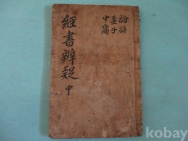 論語
孟子
中庸
經書辨疑 中
kobay